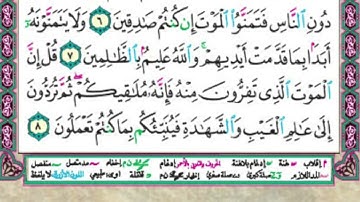 دُونِ النَّاسِ فَتَمَنَّوُا الْمَوْتَ إِن كُنتُمْ صَٰدِقِينَ ٦ وَلَا يَتَمَنَّوْنَهُۥٓ
أَبَدًۢا بِمَا قَدَّمَتْ أَيْدِيهِمْ ۚ وَاللَّهُ عَلِيمٌۢ بِالظَّٰلِمِينَ ٧ قُلْ إِنَّ
الْمَوْتَ الَّذِى تَفِرُّونَ مِنْهُ فَإِنَّهُۥ مُلَٰقِيكُمْ ۖ ثُمَّ تُرَدُّونَ
إِلَىٰ عَٰلِمِ الْغَيْبِ وَالشَّهَٰدَةِ فَيُنَبِّئُكُم بِمَا كُنتُمْ تَعْمَلُونَ ٨